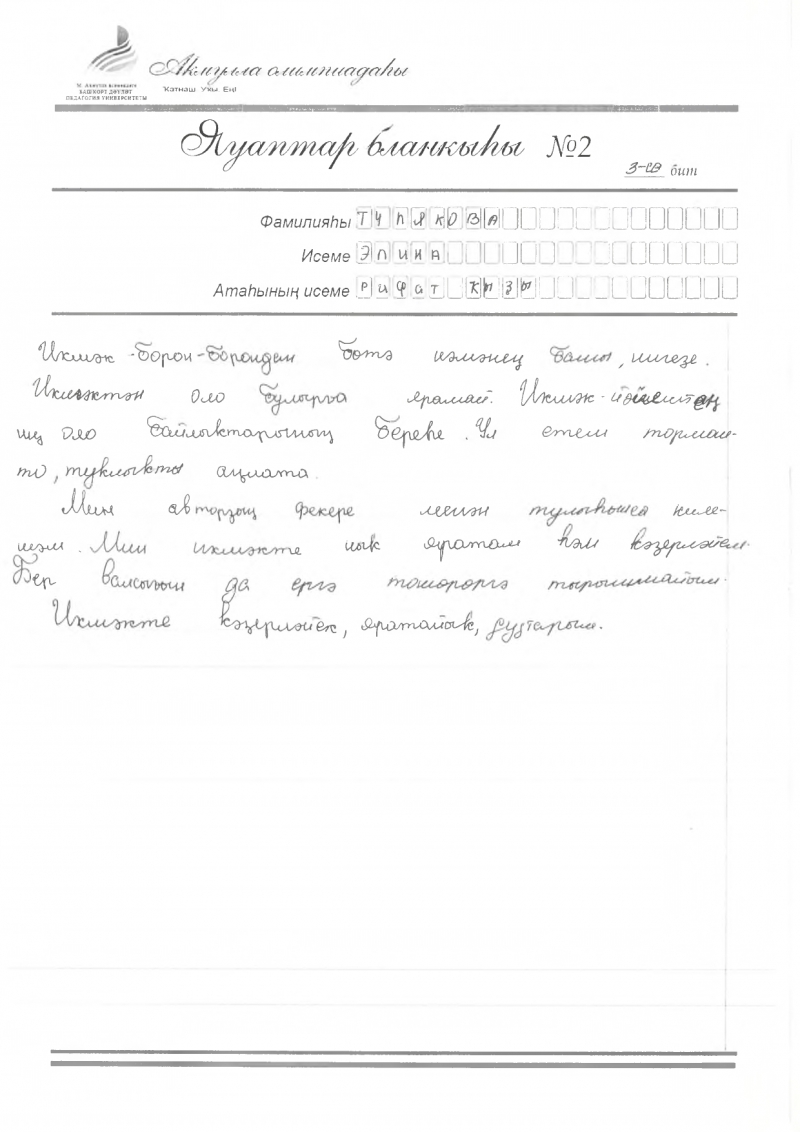 М. Акмулла исемендәге
БАШҠОРТ ДӘҮЛӘТ
ПЕДАГОГИЯ УНИВЕРСИТЕТЫ
Акмулла олимпиадаһы
Ҡатнаш Уҡы Ең!
Яуаптар бланкыһы №2
3-сө бит
Фамилияһы ТУҺЯКОВА
Исеме ЭЛИНА
Атаһының исеме РИФАТ КЫЗЫ
Икмәк - борон-борондан бөтә нәмәнең башы, нигеҙе.
Икмәктән оло булырға ярамай. Икмәк -
ң оло байлыктарының береһе. Ул етеш тормош-
то, туклыкты аңлата.
Мин авторҙың фекере менән тулыһынса киле-
шәм. Мин икмәкте ныҡ яратам һәм кәҙерләйем.
Бер валсығын да ергә төшөрөргә тырышмайым.
Икмәкте кәҙерләйек, яратайыҡ, дуҫтарым.